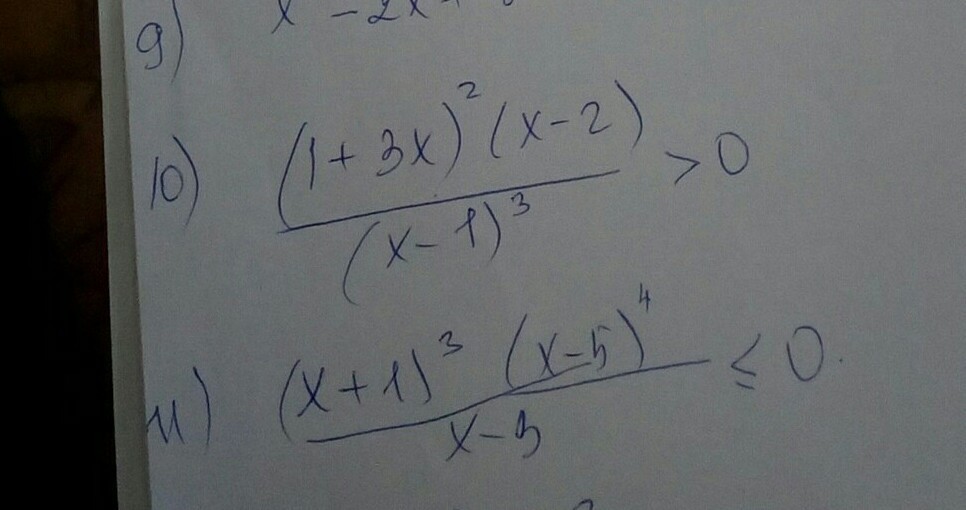 9) x - 2x
10) (1+3x)²(x-2) / (x-1)³ > 0
11) (x+1)³ (x-5)⁴ / x-3 ≤ 0.